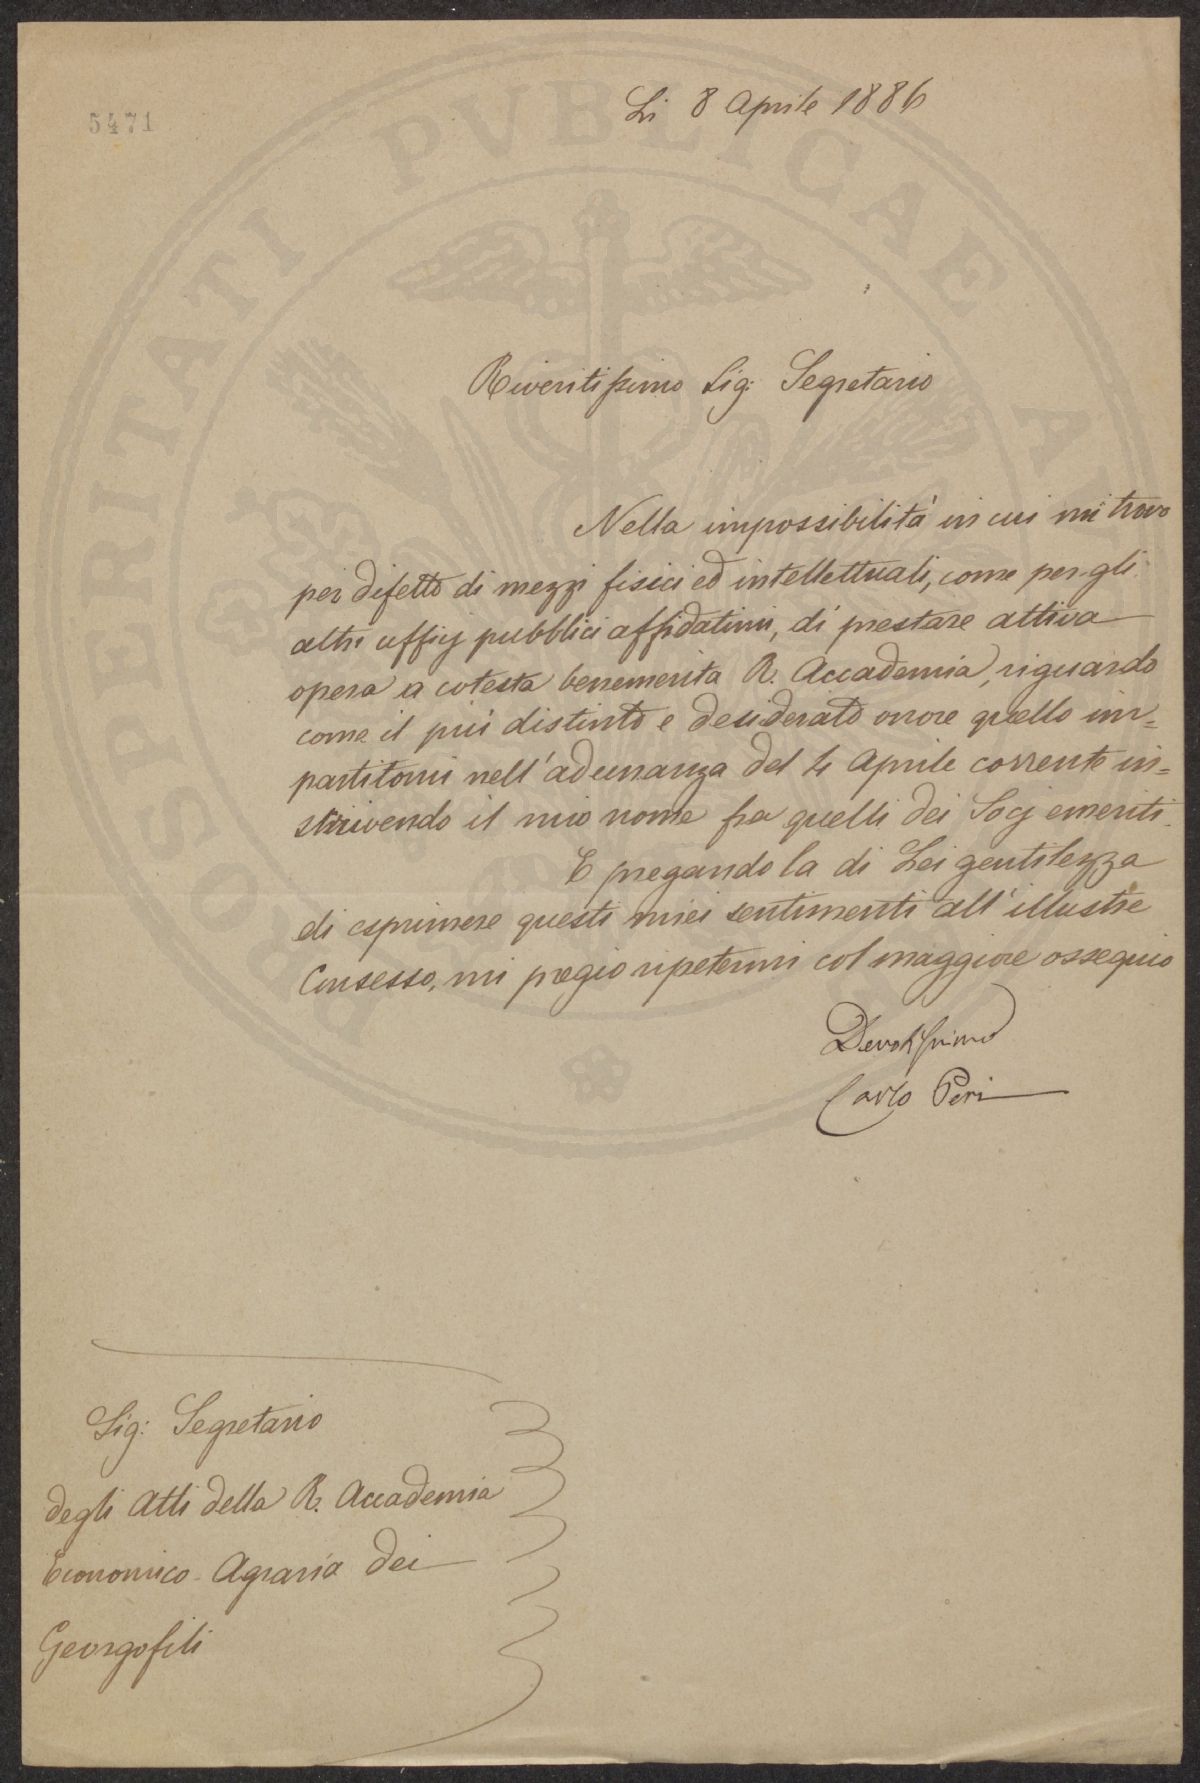 5471
Li 8 Aprile 1886
Riveritissimo Sig: Segretario
Nella impossibilità in cui mi trovo
per difetto di mezzi fisici ed intellettuali, come per gli
altri ufficj pubblici affidatimi, di prestare attiva
opera a cotesta benemerita R. Accademia, riguardo
come il più distinto e desiderato onore quello im=
partitomi nell'adunanza del 4 Aprile corrente in=
scrivendo il mio nome fra quelli dei Socj emeriti.
E pregando la di Lei gentilezza
di esprimere questi miei sentimenti all'illustre
Consesso, mi pregio ripetermi col maggiore ossequio
Devotissimo
Carlo Peri
Sig: Segretario
degli Atti della R. Accademia
Economico-Agraria dei
Georgofili
PROSPERITATI PVBLICAE AV